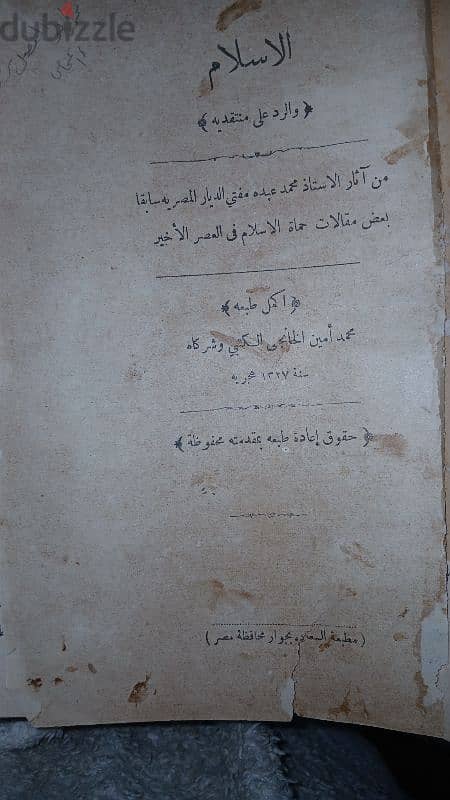 dubizzle
الاسلام
﴿ والرد على منتقديه ﴾
من آثار الاستاذ محمد عبده مفتي الديار المصريه سابقا
بعض مقالات حماة الاسلام فى العصر الأخير
﴿ اكمل طبعه ﴾
محمد أمين الخانجى الكتبي وشركاه
سنة ١٣٢٧ هجريه
﴿ حقوق إعادة طبعه بمقدمته محفوظة ﴾
( مطبعة السعاده بجوار محافظة مصر )